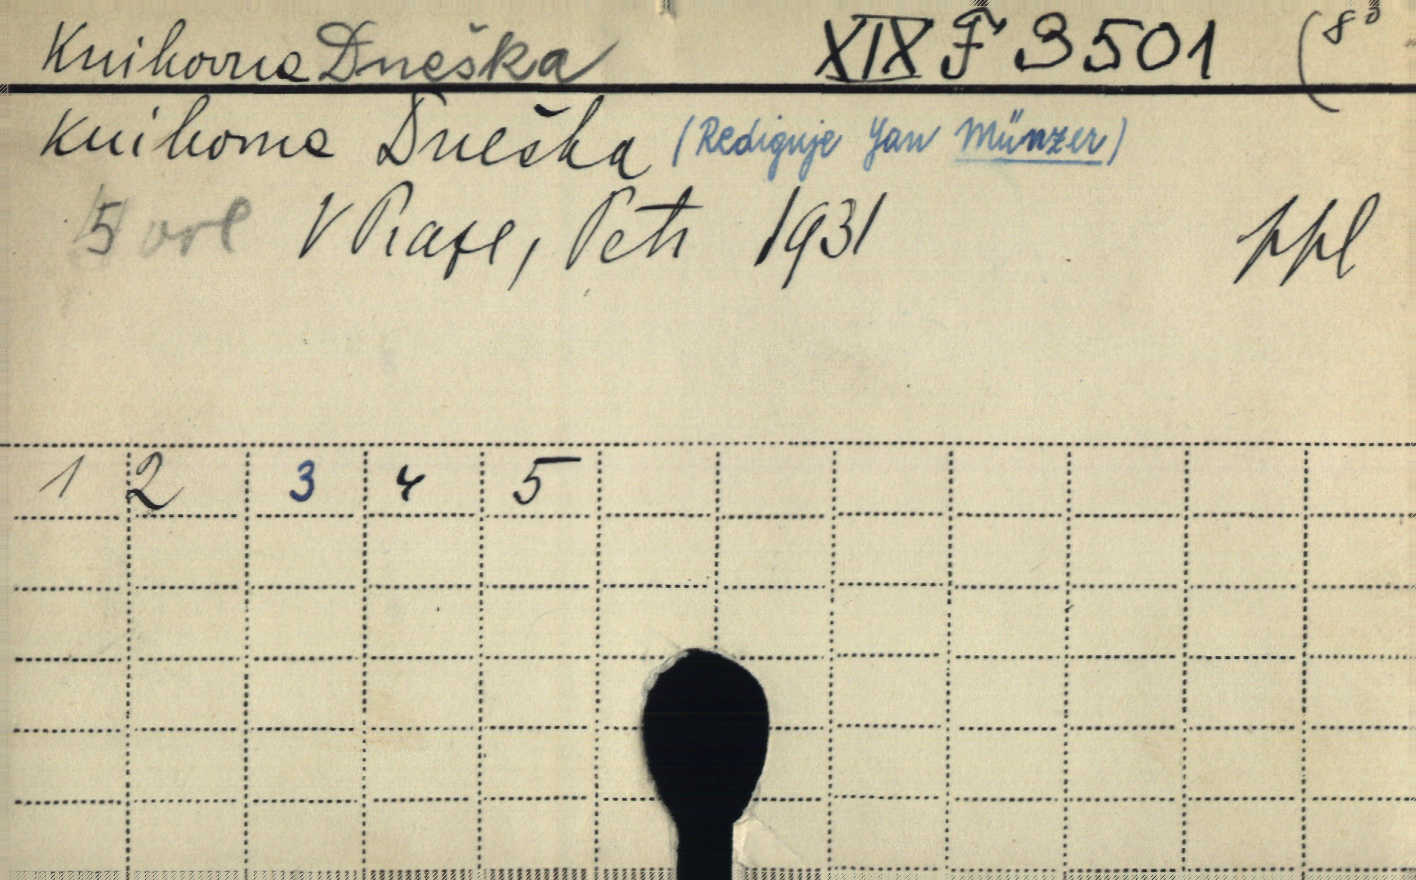 Knihovna Dneška XIX F 3501 (8°
Knihovna Dneška (Rediguje Jan Münzer)
5 V Praze, Petr 1931 ppl
1 2 3 4 5